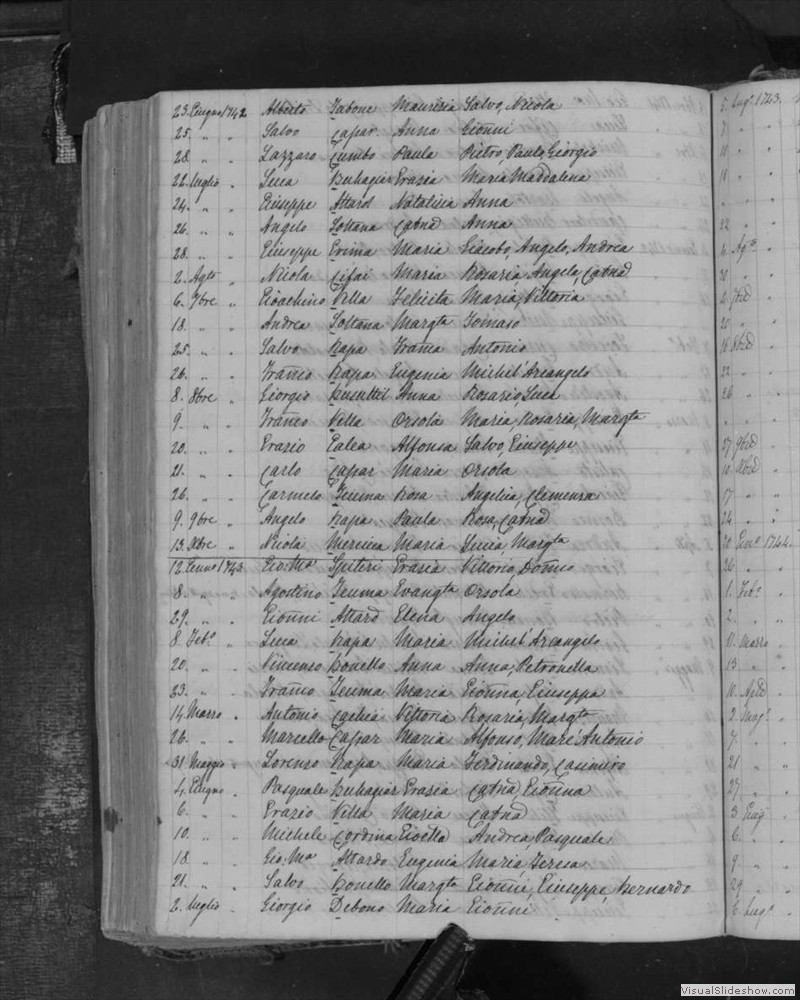 23. Giugno 1742 Alberto Zabone Maurisia Salvo, Nicola
25. " " Salvo Capar Anna Gioñni
28. " " Lazzaro Cumbo Paula Pietro, Paulo, Giorgio
22. luglio " Luca Buhagiar Grazia Maria Maddalena
24. " " Giuseppe Attard Natalisia Anna
26. " " Angelo Soltana Catnd Anna
28. " " Giuseppe Grima Maria Giacobo, Angelo, Andrea
2. Agto " Nicola Cifai Maria Rosaria, Angelo, Catnad
6. 7bre " Gioachino Vella Felicita Maria, Vittoria
18. " " Andrea Soltana Margta Tomaso
25. " " Salvo Rapa Franca Antonio
26. " " Franco Rapa Eugenia Michel' Arcangelo
8. 8bre " Giorgio Busuttil Anna Rosario, Luca
9. " " Franco Vella Orsola Maria, Rosaria, Margta
20. " " Grazio Galea Alfonsa Salvo, Giuseppe
21. " " Carlo Capar Maria Orsola
26. " " Carmelo Zeuma Rosa Angelica, Clemenza
9. 9bre " Angelo Rapa Paula Rosa, Catnad
13. Xbre " Nicola Mercieca Maria Lucia, Margta
12. Genno 1743 Gio: Ma Spiteri Grazia Vittorio, Domco
8. " " Agostino Zeuma Evangta Orsola
29. " " Gioñni Attard Elena Angelo
8. Feb.o " Luca Rapa Maria Michel' Arcangelo
20. " " Vincenso Bonello Anna Anna, Petronella
23. " " Franco Zeuma Maria Gioñna, Giuseppa
14. Marzo " Antonio Cachia Vittoria Rosaria, Margta
26. " " Marcello Capar Maria Alfonso, Marc' Antonio
31. Maggio " Lorenzo Rapa Maria Ferdinando, Casimiro
4. Giugno " Pasquale Buhagiar Grazia Catnd, Gioñna
6. " " Grazio Vella Maria Catnad
10. " " Michele Cordina Gioella Andrea, Pasquale
18. " " Gio: Ma Attardo Eugenia Maria, Teresa
21. " " Salvo Bonello Margta Gioñni, Giuseppe, Bernardo
2. luglio " Giorgio Debono Maria Gioñni
5. lug.o 1743.
8. " "
22. " "
4. Ag.to "
20. " "
22. " "
26. " "
27. 9bre
10. Xbre
17. " "
24. " "
20. Genn.o 1744.
26. "
1. Feb.o "
2. " "
11. Marzo "
13. " "
10. Aple "
2. Mag.o "
7. " "
21. " "
27. " "
3. Giug "
6. " "
9. " "
29. " "
6. lug.o "
VisualSlideshow.com